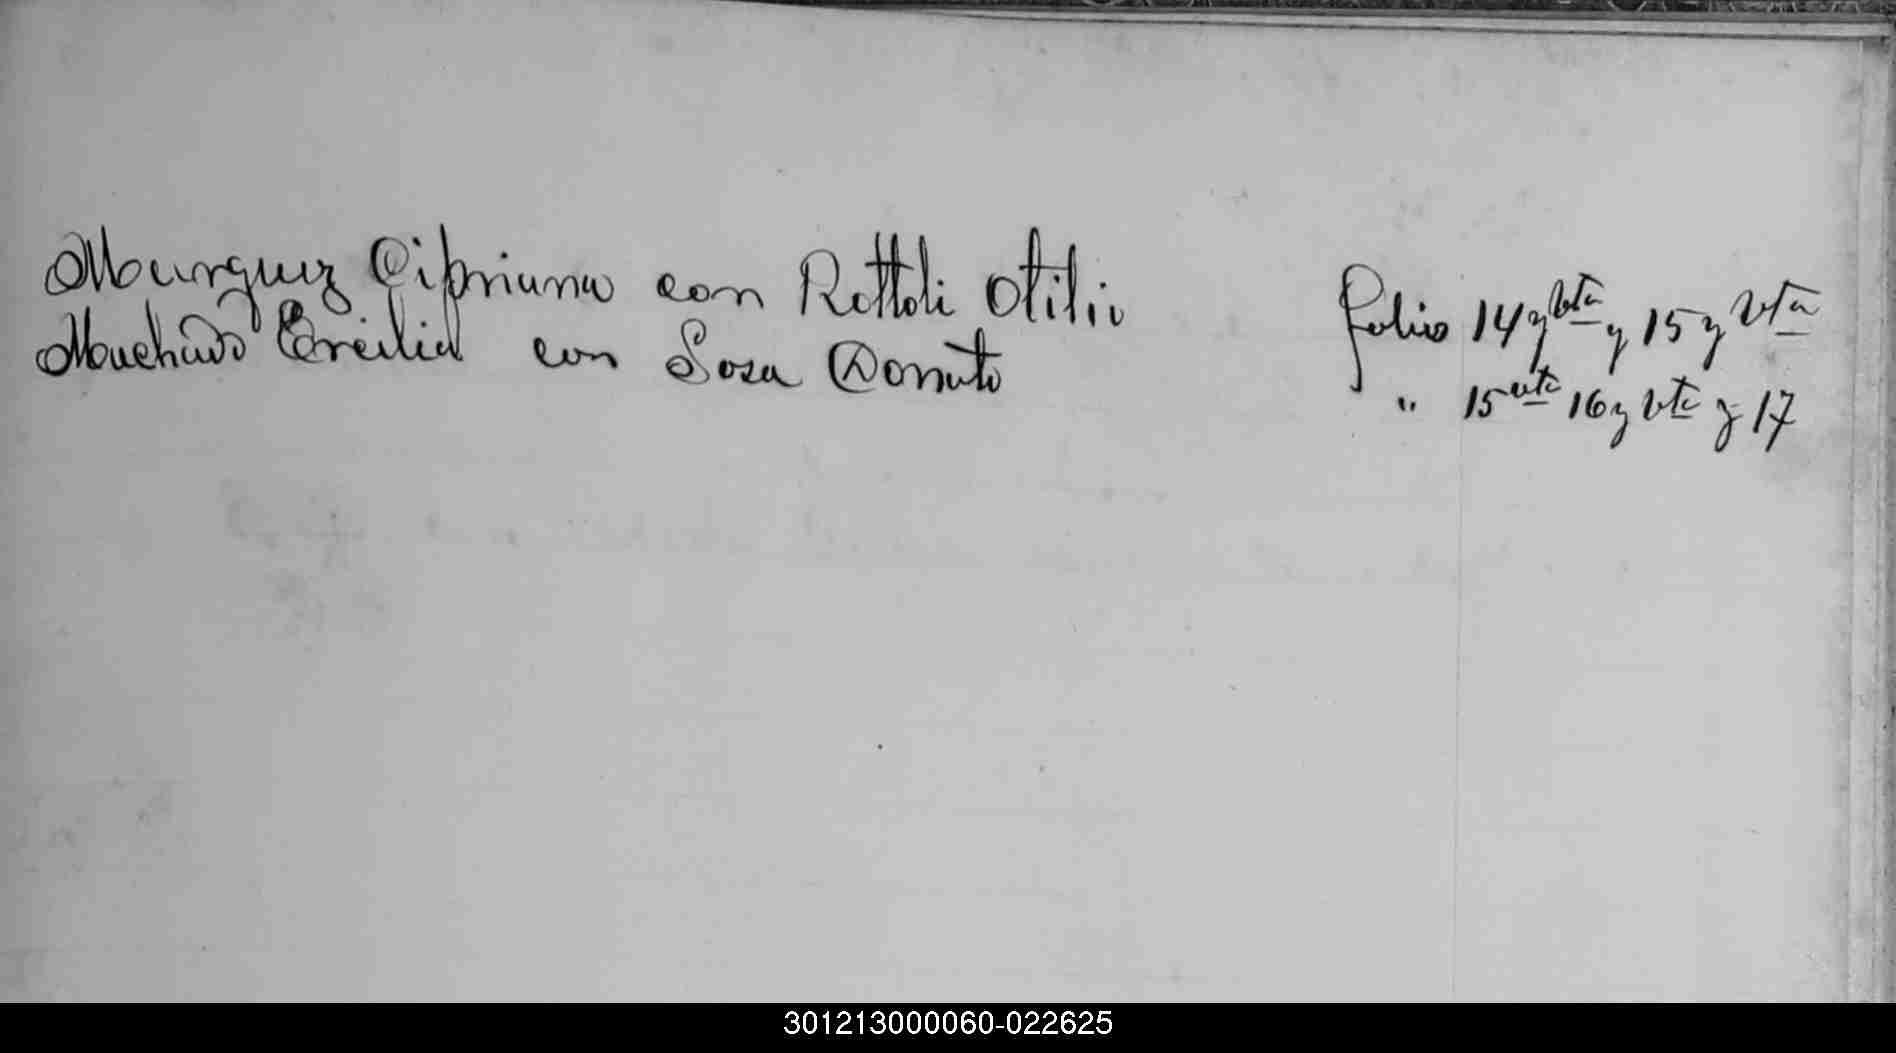 Marquez Cipriana con Rottoli Otilio folio 14 y vta y 15 y vta
Machado Ercilia con Sosa Donato " 15 vta 16 y vta y 17
301213000060-022625